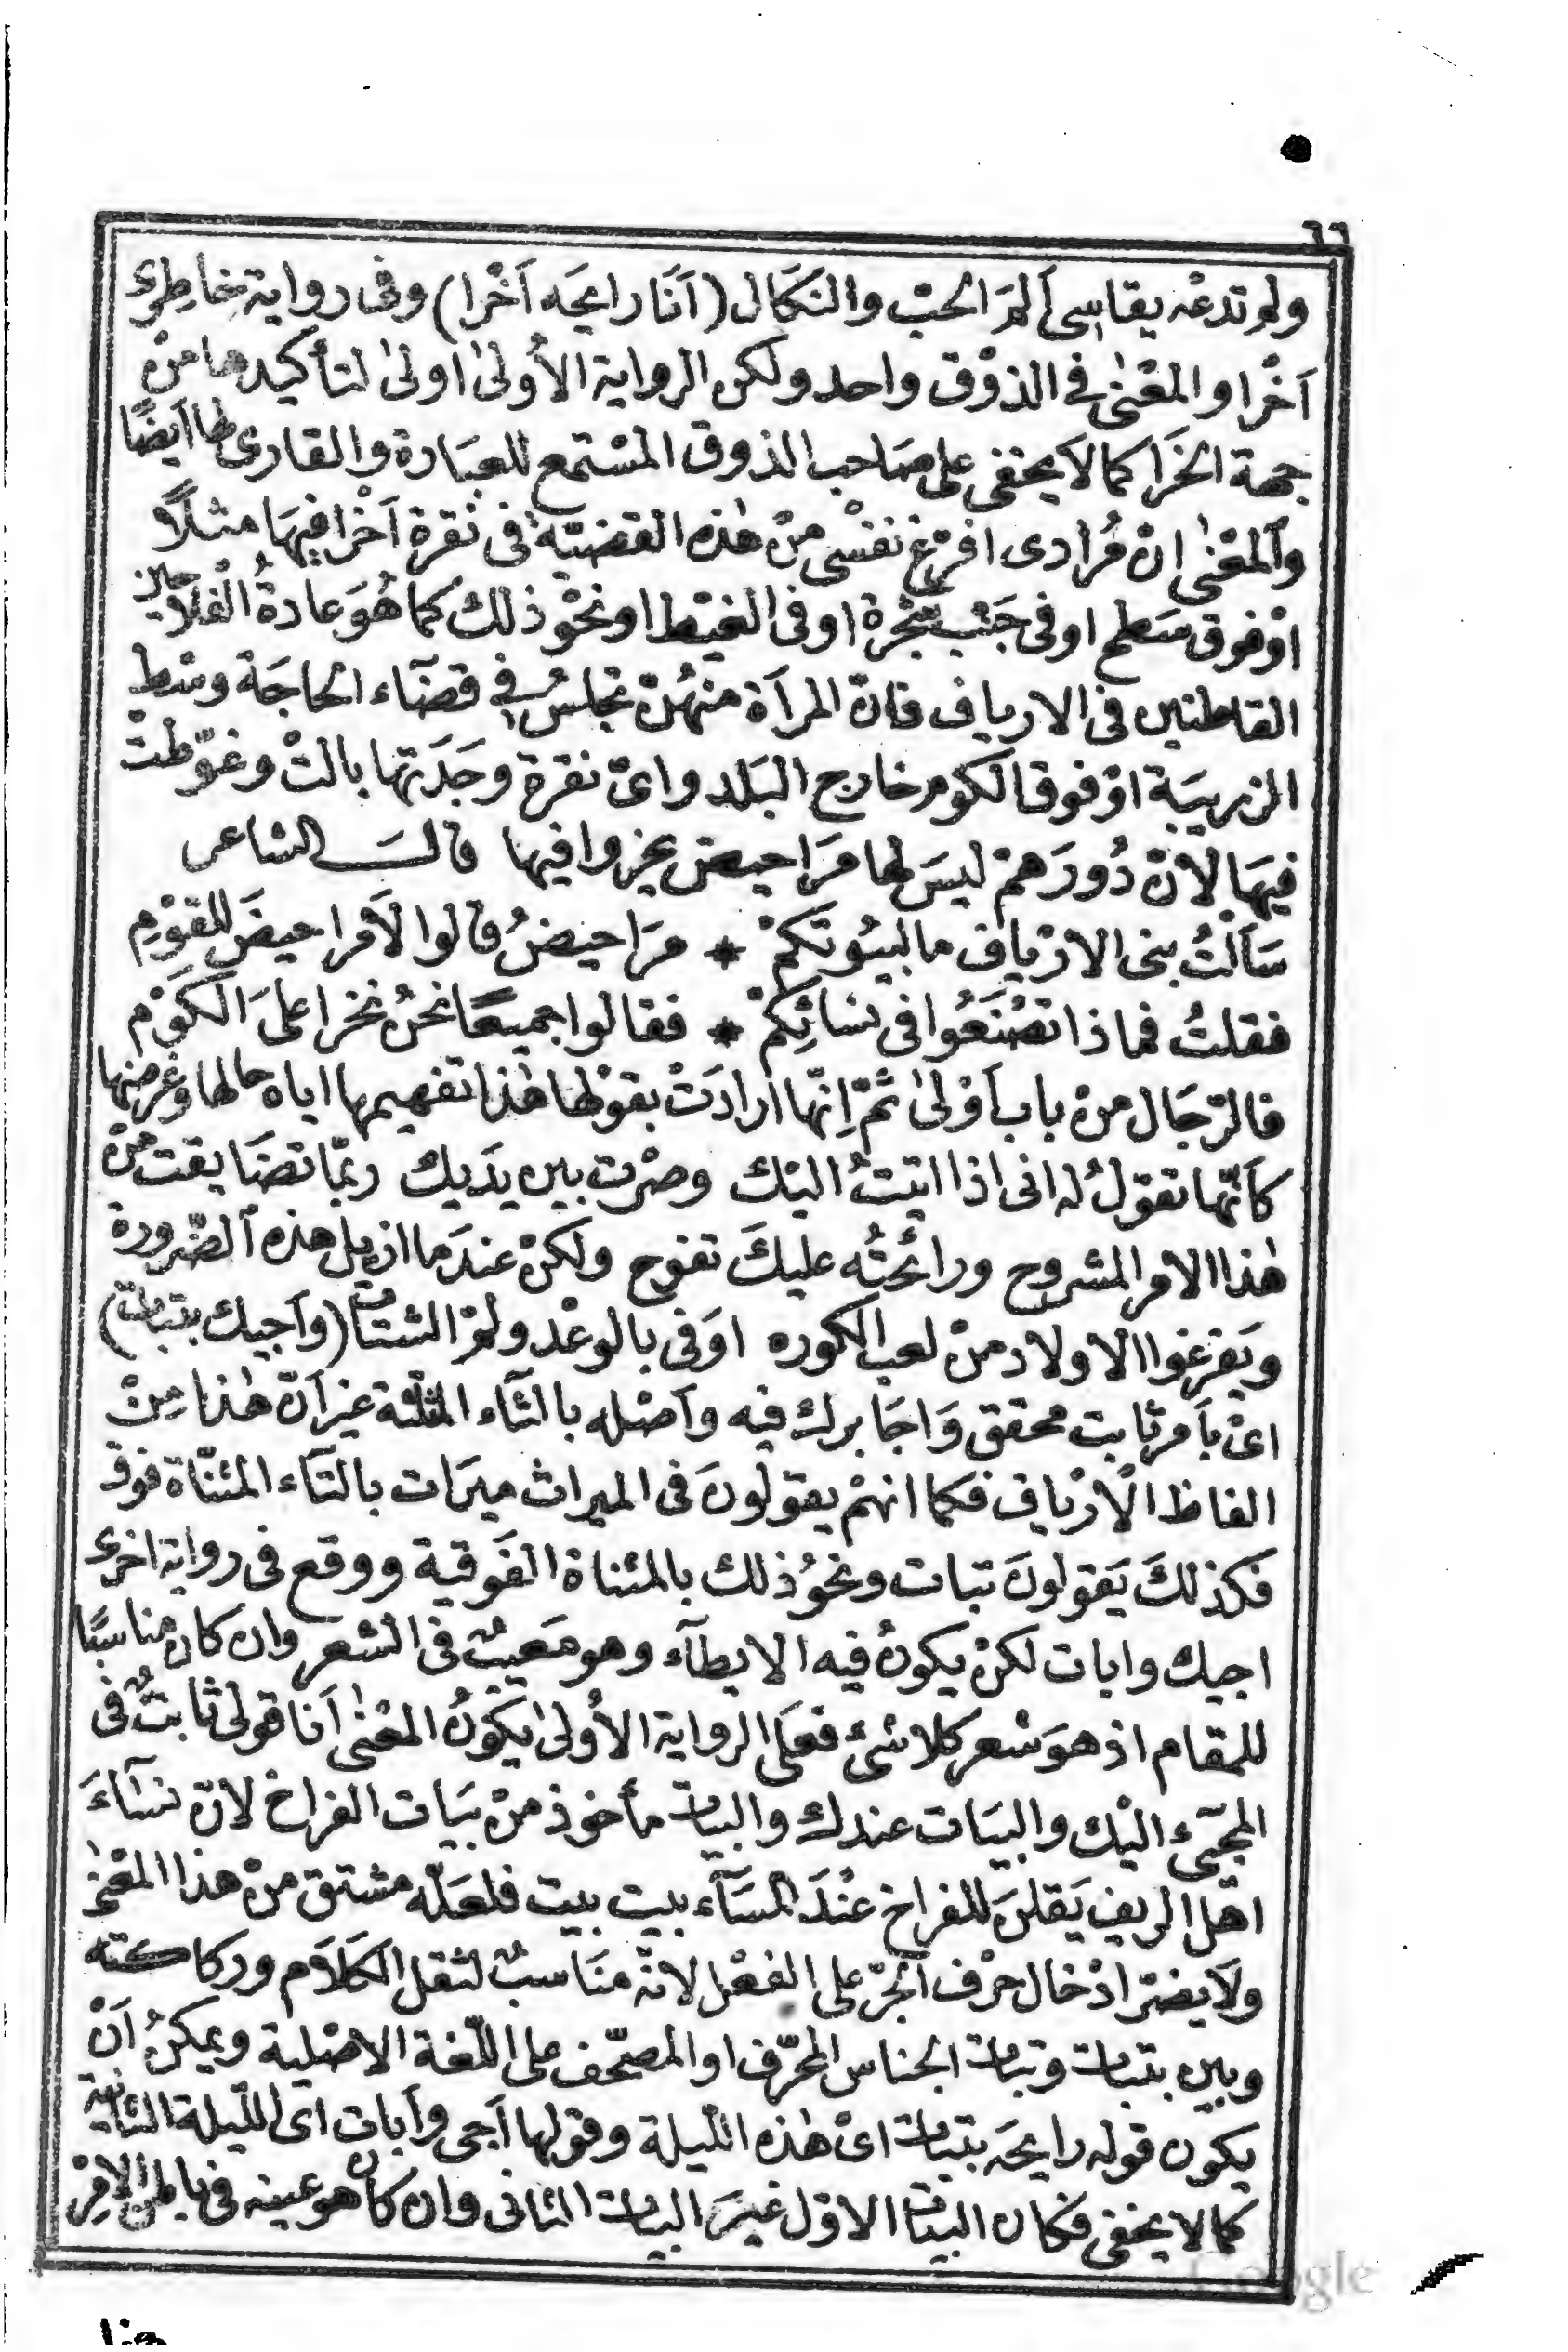 ٦٦
ولم تدعه يقاسى ألم الحبّ والنّكال (أنَا رايحَه أخْرا) وفى رواية خاطرى
أخْرا والمعْنىٰ فى الذوْق واحد ولكن الرواية الأولىٰ اولىٰ لتأكيدها منْ
جهة الخرَا كما لاَ يخفى على صَاحب الذوق المسْتمع للعبَارة والقارى لها أيضًا
وٱلمعْنىٰ انّ مُرادى افرّغ نفسْى منْ هٰذه القضيّة فى نقرة أخْرا فيهَا مثلاً
اوْ فوق سَطح او فى جَنْب شجْرة او فى الغيْط او نحْو ذلك كما هُوَ عادةُ الفلاّحين
القاطنين فى الارياف فانّ المرأة منهُنّ تجلسُ فى قضَآء الحاجَة وسْط
الزريبَة اوْ فوق الكوْم خارج البَلد واىّ نقرة وجَدَتها بالتْ وغوّطتْ
فيهَا لأنّ دُورَهمْ ليسَ لها مرَاحيض يخروا فيها قالـــ الشاعر
سَألْتُ بنى الارْياف ما لبيُوتكمْ * مرَاحيضُ قالوا لاَ مراحيضَ للقوْمِ
فقلتُ فماذا تصْنَعُوا فى نسائِكمْ * فقالوا جميعًا نحْنُ نخرا علىَ الكوْمِ
فالرّجَال منْ باب أوْلىٰ ثمّ إنّها أرادَتْ بقوْلها هٰذا تفهيمها اياه حالها وغرضها
كأنّها تقولُ له انى اذا اتيتُ اليْك وصْرت بين يدَيك ربمّا تضَايقت منْ
هٰذا الامر المشروح ورائحتُه عليكَ تفوح ولكنْ عندَما ازيل هذه ٱلضّرورة
ويَفرغوا الاولاد منْ لعب الكوره اوَفى بالوعْد ولمّ الشتات (وَأجيك بتبات)
اىْ بأمر ثابت محقق وَاجَا برك فيه وأصْله بالثآء المثلثة غير أنّ هٰذا مِنْ
الفاظ الأرْياف فكما انهمْ يقولونَ فى الميراث ميرَات بالتآء المثنّاة فوق
فكذلكَ يَقولونَ تبات ونحوُ ذلك بالمثناة الفَوقية ووقع فى رواية اخرى
اجيك وابات لكنْ يكونُ فيه الايطآء وهو مَعيبٌ فى الشعر وان كان مناسبًا
للمقام اذ هوَ شعر كلا شئ فعلَى الرواية الأولىٰ يكونُ المعْنىٰ أنا قولى ثابتٌ فى
المجىء اليْك والبيَات عندك والبيات مأخوذ منْ بيَات الفراخ لانّ نسَآءَ
اهْل الريف يَقلنَ للفراخ عنْدَ المسَآء بيت بيت فلعَلّه مشتق منْ هذا المعْنىٰ
ولاَ يضرّ ادْخال حرْف الجرّ على الفعْل لانهّ منَاسبٌ لثقل الكلاَم وركاكته
وبين بتبات وتبات الجناس المحرّف او المصحّف على اللّغة الاصْلية ويمكنُ أنْ
يكون قوله رايحَه بتبات اىْ هٰذه اللّيلة وقولها أجى وأبات اى اللّيلة الثانية
كما لا يخفى فكان البيات الاوّل غيرَ البيات الثانى وان كان هو عينه فى باطن الامْر
هنا
Google